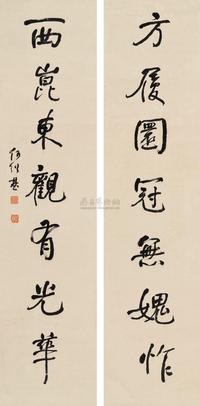 方履圜冠無媿怍
西崑東觀有光華
何紹基